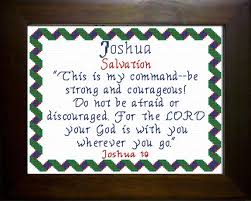 Joshua
Salvation
"This is my command--be
strong and courageous!
Do not be afraid or
discouraged. For the LORD
your God is with you
wherever you go."
Joshua 19